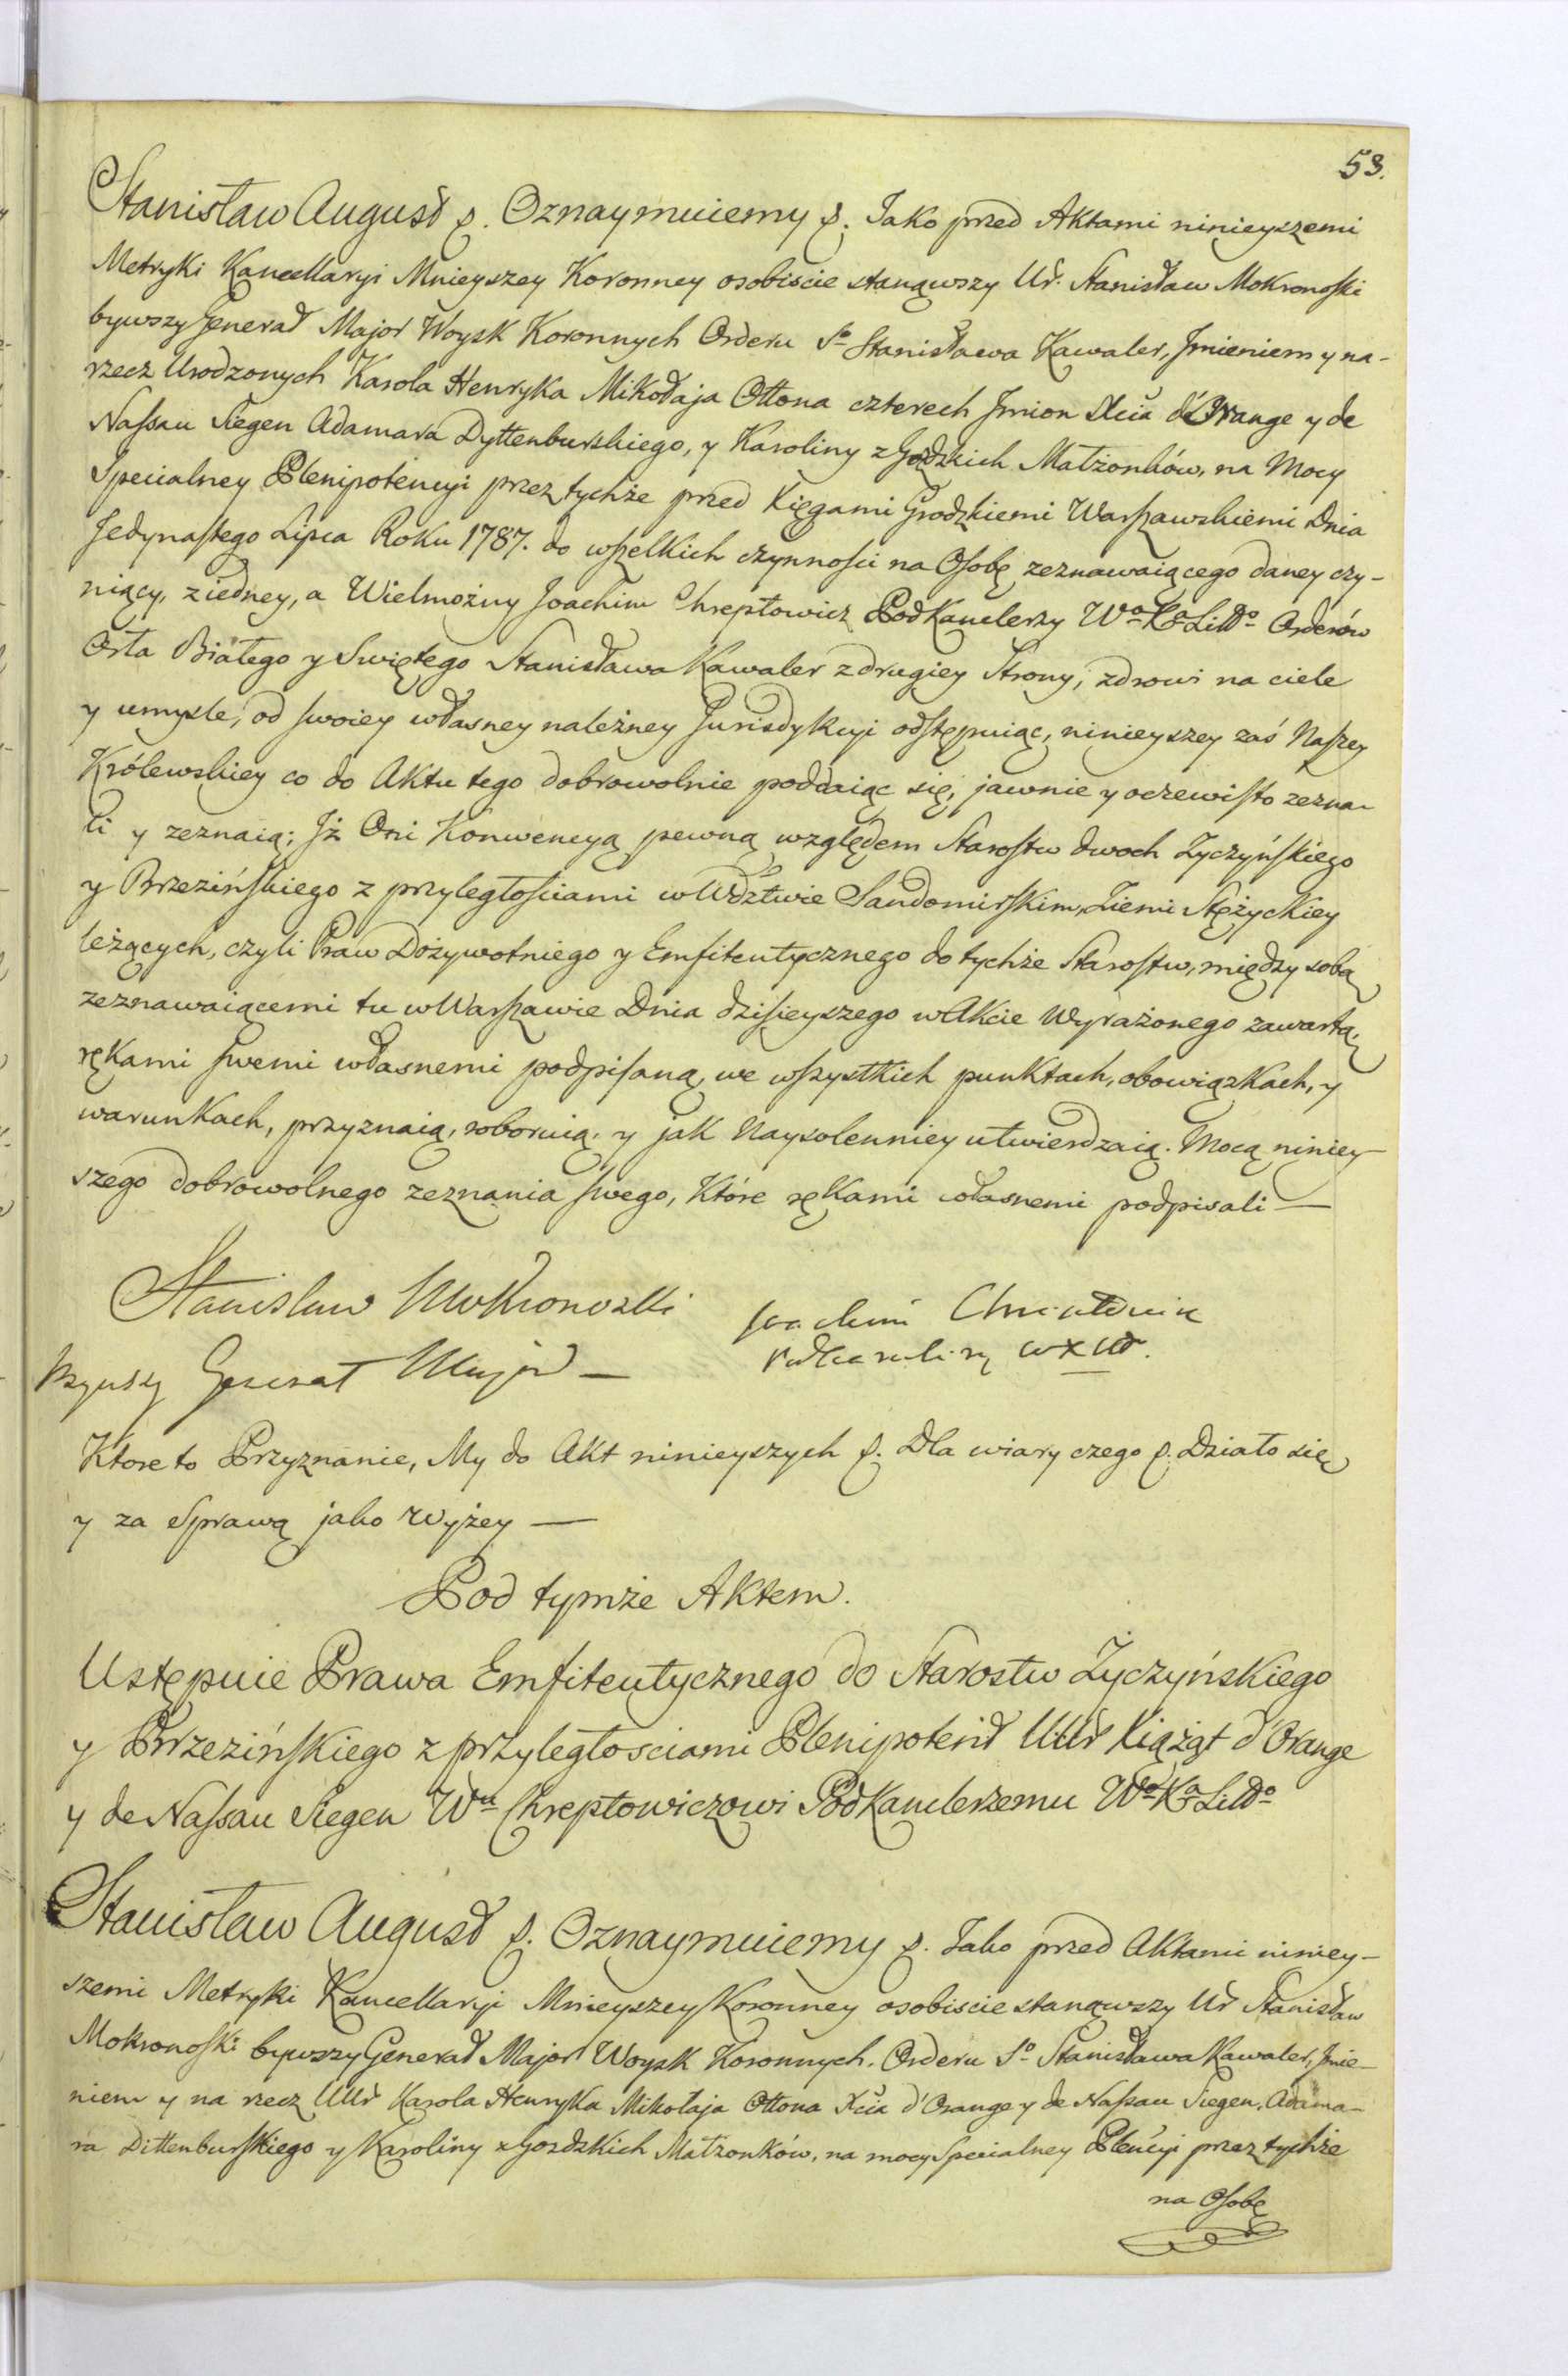 53.
Stanisław August &. Oznaymuiemy &. Jako przed Aktami ninieyszemi
Metryki Kancellaryi Mnieyszey Koronney osobiscie stanąwszy Ur. Stanisław Mokronoski
bywszy Generał Major Woysk Koronnych Orderu So Stanisława Kawaler, Jmieniem y na-
rzecz Urodzonych Karola Henryka Mikołaja Ottona czterech Jmion Xcia d'Orange y de
Nassau Siegen Adamara Dyttenburskiego, y Karoliny z Gozdzkich Małżonków, na Mocy
Specialney Plenipotencyi przez tychże przed Xięgami Grodzkiemi Warszawskiemi Dnia
Jedynastego Lipca Roku 1787. do wszelkich czynności na Osobę zeznawaiącego daney czy-
niący, z iedney, a Wielmożny Joachim Chreptowicz Podkanclerzy Wo Ko Litto Orderów
Orła Białego y Swiętego Stanisława Kawaler z drugiey Strony, zdrowi na ciele
y umysle, od swoiey własney należney Jurisdykcyi odstępuiąc, ninieyszey zaś Naszey
Królewskiey co do Aktu tego dobrowolnie poddaiąc się, jawnie y oczewisto zezna-
li y zeznaią; Jż Oni Konwencyą pewną względem Starostw dwoch Zyczyńskiego
y Brzezińskiego z przyległościami w Wdztwie Sandomirskim, Ziemi Stężyckiey
leżących, czyli Praw Dożywotniego y Emfiteutycznego do tychże Starostw, między sobą
zeznawaiącemi tu w Warszawie Dnia dzisieyszego w Akcie Wyrażonego zawartą,
rękami swemi własnemi podpisaną, we wszystkich punktach, obowiązkach, y
warunkach, przyznaią, roboruią, y jak Naysolenniey utwierdzaią. Mocą niniey-
szego dobrowolnego zeznania swego, Które rękami własnemi podpisali —
Stanisław Mokronoski Joachim Chreptowicz
bywszy Generał Major — Podkanclerzy WXLitt.
Ktore to Przyznanie, My do Akt ninieyszych &. Dla wiary czego &. Działo się
y za Sprawą jako wyżey —
Pod tymże Aktem.
Ustępuie Prawa Emfiteutycznego do Starostw Życzyńskiego
y Brzezińskiego z przyległosciami Plenipotent UUr Xiążąt d'Orange
y de Nassau Siegen Wu Chreptowiczowi Podkanclerzemu Wo Ko Litto
Stanisław August &. Oznaymuiemy &. Jako przed Aktami niniey-
szemi Metryki Kancellaryi Mnieyszey Koronney osobiscie stanąwszy Ur Stanisław
Mokronoski bywszy Generał Major Woysk Koronnych, Orderu So Stanisława Kawaler, Jmie-
niem y na rzecz UUr Karola Henryka Mikołaja Ottona Xcia d'Orange y de Nassau Siegen, Adama-
ra Dittenburskiego y Karoliny z Gozdzkich Małzonków, na mocy Specialney Plencyi przez tychże
na Osobę